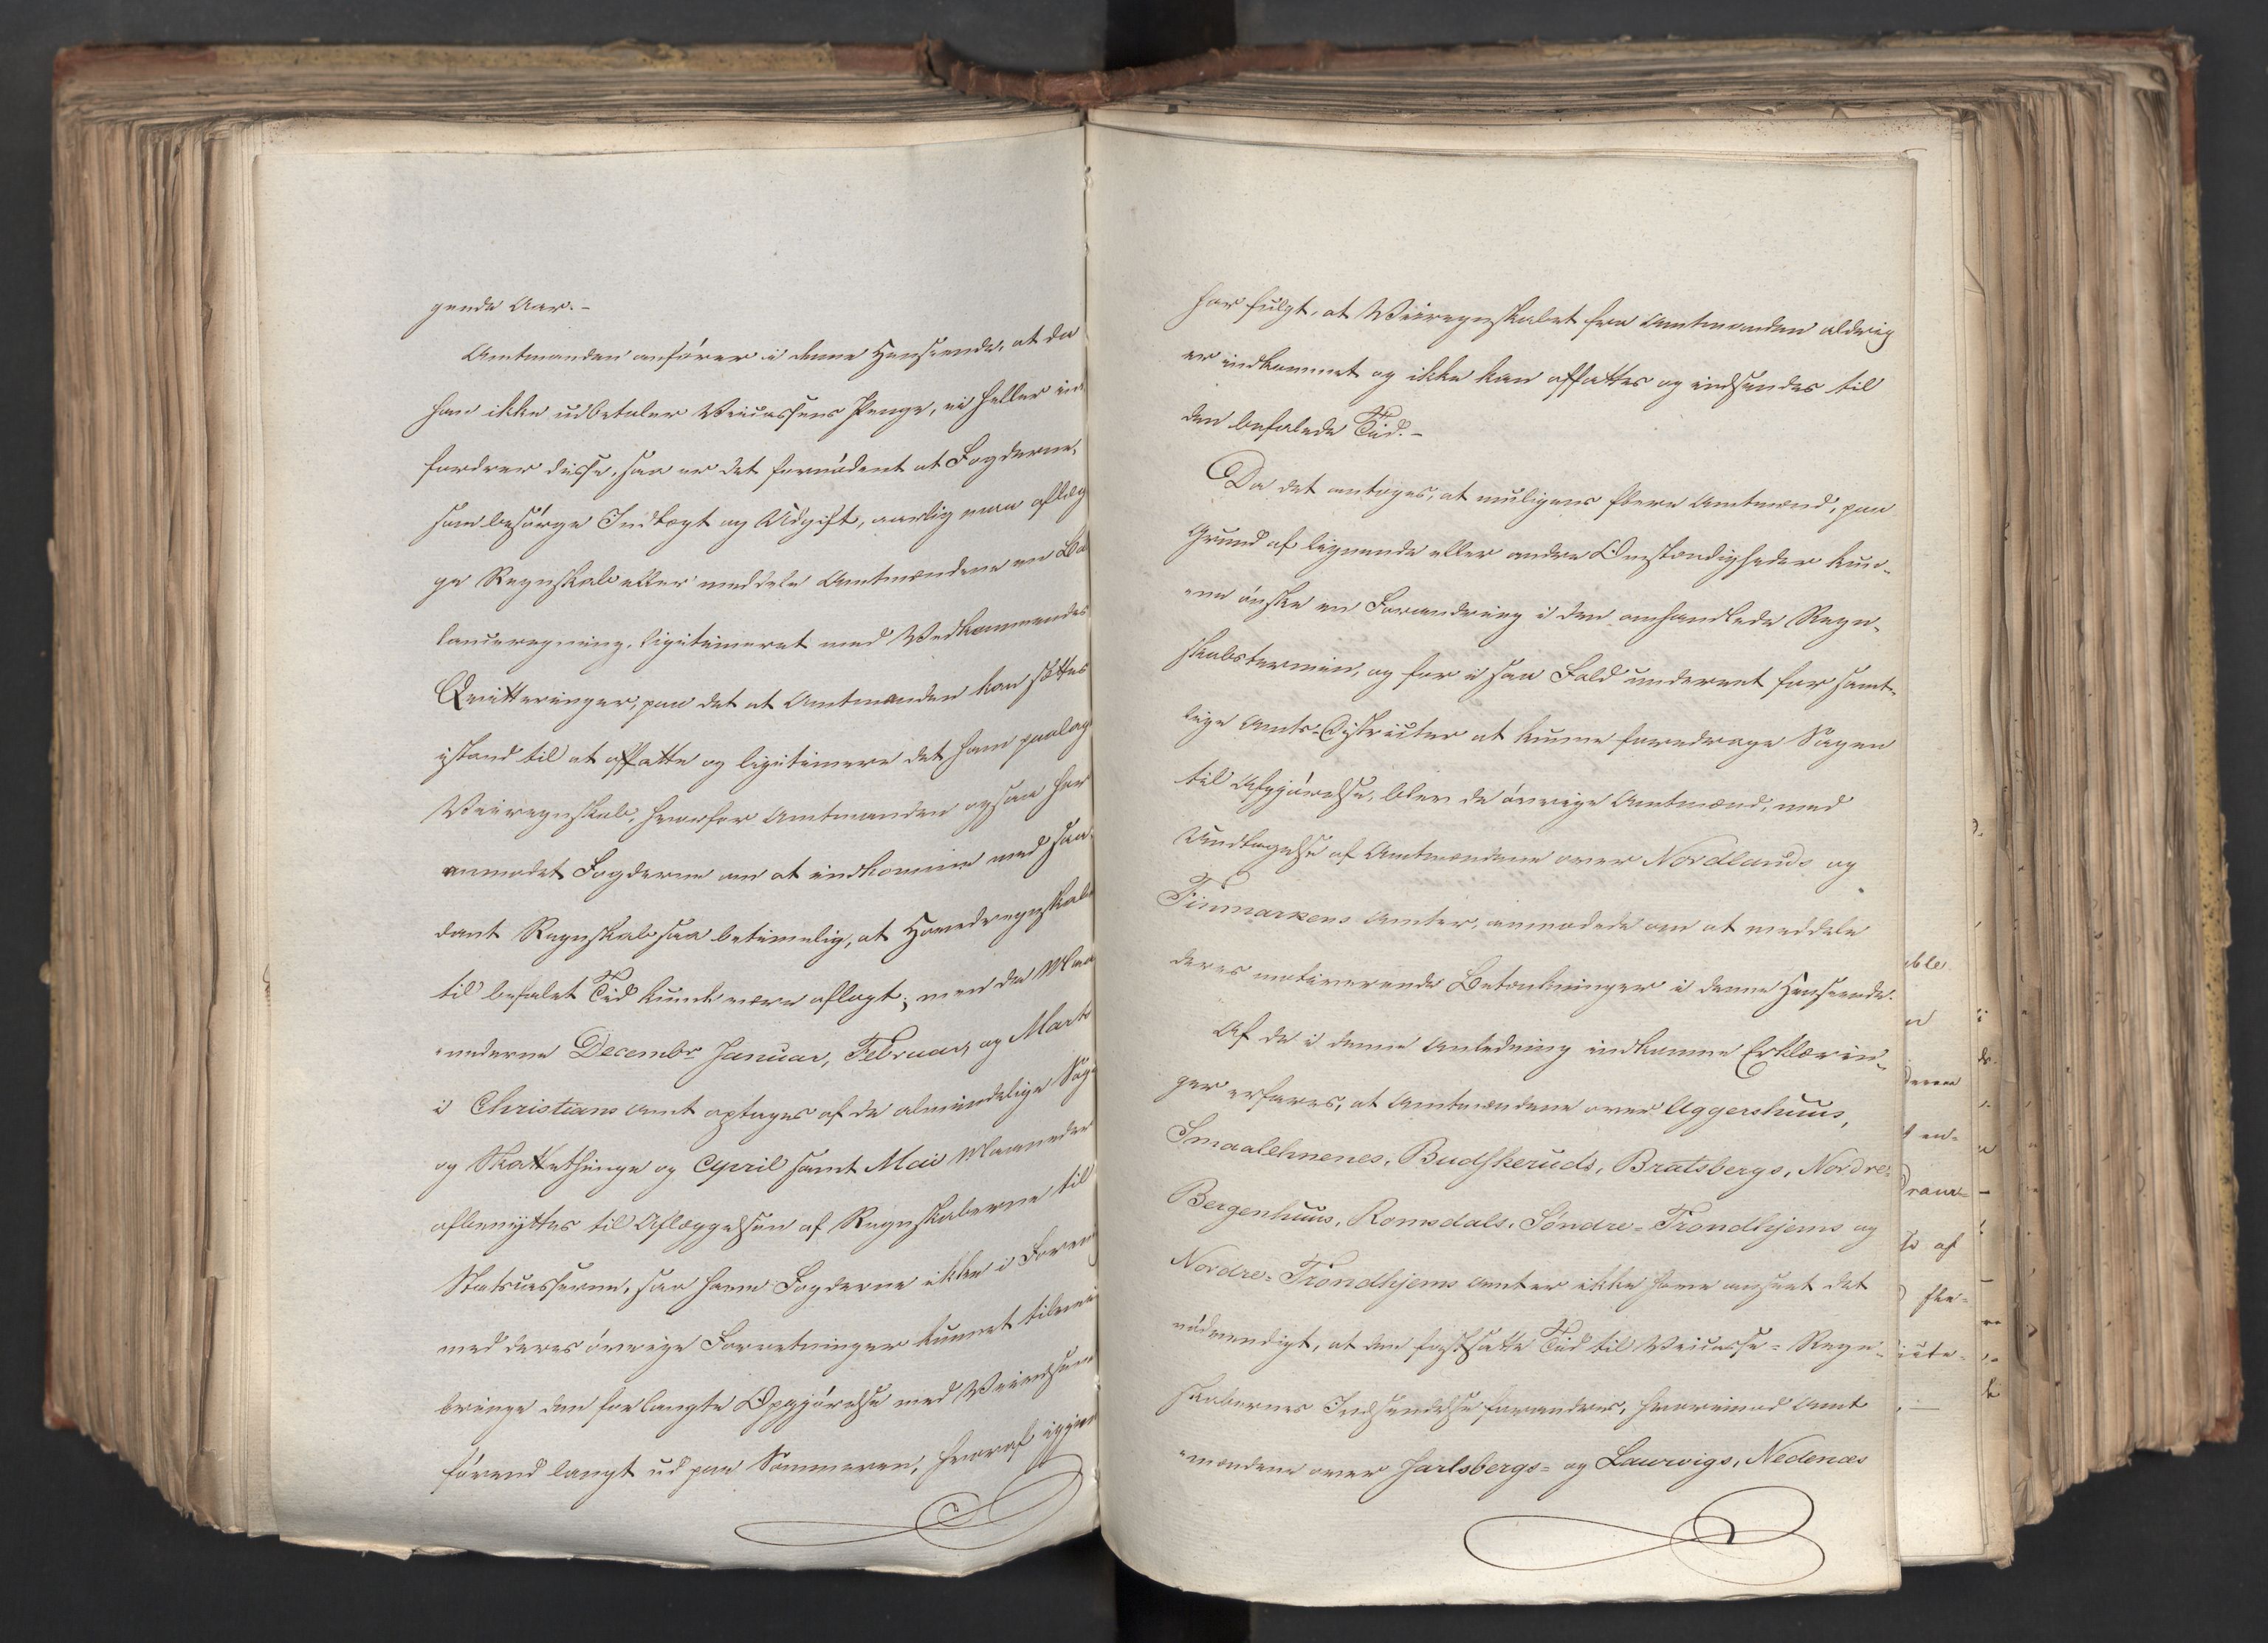 gende Aar.-
Amtmanden anfører i denne Henseende, at da
han ikke udbetaler Veicassens Penge, ei heller ind-
fordrer disse, saa er det fornødent at Fogderne,
som besørge Indtægt og Udgift, aarlig maa aflæg-
ge Regnskab eller meddele Amtmændene en Ba-
lanceregning, ligitimeret med Vedkommendes
Qvitteringer, paa det at Amtmanden kan sættes
istand til at affatte og ligitimere det ham paalag
Veiregnskab, hvorfor Amtmanden ogsaa har
anmodet Fogderne om at indkomme med saa-
dant Regnskab saa betimelig, at Hovedregnskab
til befalet Tid kunde være aflagt; men da Maa-
nederne Decembr Januar, Februar, og Marts
i Christians Amt optages af de almindelige Sage
og Skattethinge og April samt Mai Maaneder
afbenyttes til Aflæggelsen af Regnskaberne til
Statscasserne, saa have Fogderne ikke i Foren
med deres øvrige Forretninger kunnet tilvei-
bringe den forlangte Opgjørelse med Veicassen
førend langt ud paa Sommeren, hvoraf igjen
har fulgt, at Veiregnskabet fra Amtmanden aldrig
er indkommet og ikke kan affattes og indsendes til
den befalede Tid.-
Da det antoges, at muligens flere Amtmænd, paa
Grund af lignende eller andre Omstændigheder kun-
ne ønske en Forandring i den omhandlede Regn-
skabstermin, og for i saa Fald underet for samt-
lige Amts-Districter at kunne foredrage Sagen
til Afgjørelse, blev de øvrige Amtmænd, med
Undtagelse af Amtmændene over Nordlands og
Finmarkens Amter, anmodede om at meddele
deres motiverende Betænkninger i denne Henseende.
Af de i denne Anledning indkomne Erklærin-
ger erfares, at Amtmændene over Aggershuus,
Smaalehnenes, Budskeruds, Bratsbergs, Nordre-
Bergenhuus, Romsdals, Søndre-Trondhjems og
Nordre-Trondhjems Amter ikke have anseet det
nødvendigt, at den fastsatte Tid til Veicasse-Regn-
skabernes Indsendelse forandres, hvorimod Amt
mændene over Jarlsbergs- og Laurvigs, Nedenæs